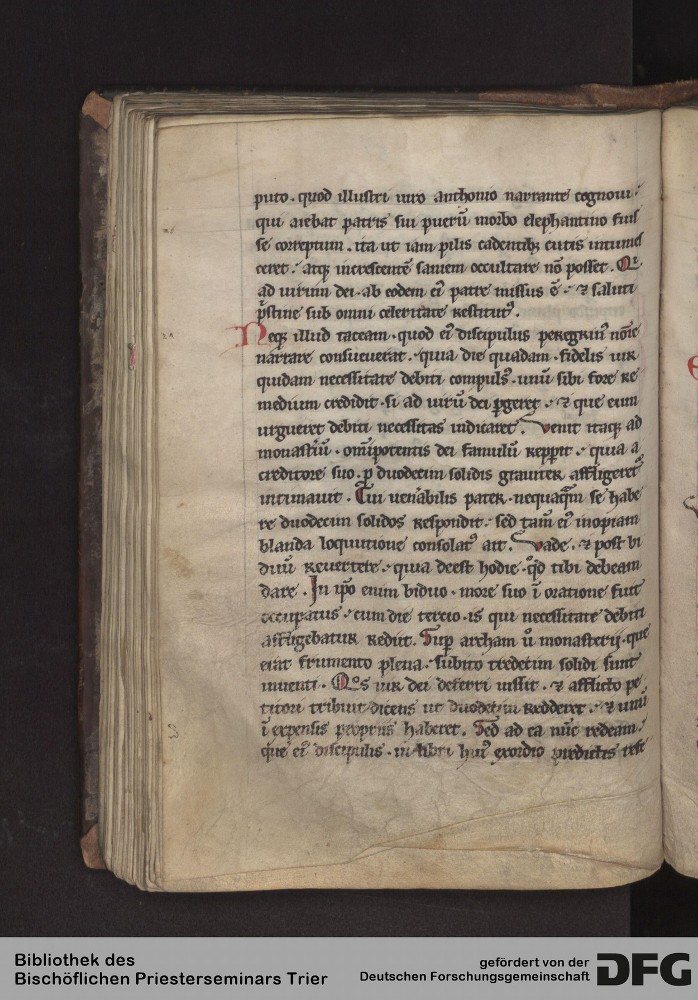 puto. quod illustri uiro anthonio narrante cognoui:
qui aiebat patris sui puerū morbo elephantino fuis
se correptum. ita ut iam pilis cadentibꝫ cutis intumes
ceret: atqꝫ increscentē saniem occultare nō posset. Qi
ad uirum dei. ab eodem eiꝰ patre missus ē: ⁊ saluti
p̄stine sub omni celeritate restitutꝰ.
Neqꝫ illud taceam. quod eiꝰ discipulus peregrinꝰ noīe
narrare consueuerat. quia die quadam. fidelis uir
quidam necessitate debiti compulsꝰ. unū sibi fore re
medium credidit. si ad uirū dei ꝑgeret: ⁊ que eum
urgueret debiti necessitas indicaret. Venit itaqꝫ ad
monastīū. omīpotentis dei famulū repperit: quia a
creditore suo. ꝑ duodecim solidis grauiter affligeretᷣ
intimauit. Cui uenābilis pater. nequaqᷓm se habe
re duodecim solidos respondit: sed tam̄ eiꝰ inopiam
blanda loquutione consolatꝰ ait. Vade. ⁊ post bi
duū reuertere. quia deest hodie. qd tibi debeam
dare. In ip̄o enim biduo. more suo ī oratione fuit
occupatus. cum die tercio. is qui necessitate debiti
affligebatur rediit. Sup archam ū monasterij. que
erat frumento plena. subito tredecim solidi sunt
inuenti. Qos uir dei deferri iussit. ⁊ afflicto pe
titori tribuit dicens ut duodecim redderet. ⁊ unū
ī expensis propriis haberet. Sed ad ea nūc redeam:
que eiꝰ discipulis. in libri huiꝰ exordio predictis refe
Bibliothek des
Bischöflichen Priesterseminars Trier
gefördert von der
Deutschen Forschungsgemeinschaft
DFG